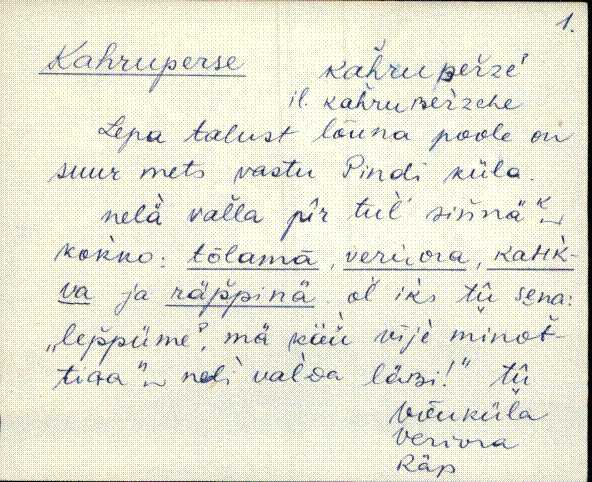 1.
Kahruperse kahru perze
il. kahru perzehe
Lepa talust lõuna poole on
suur mets vastu Pindi küla.
nelä valla pīr tul´ sinnä
kokko: tōlamā, veriora, kahk-
va ja räppinä ol´ iks tū sena:
„leppüme, mā käü vijè minot-
nel´i valda läbi!" tū
Võuküla
Veriora
Räp